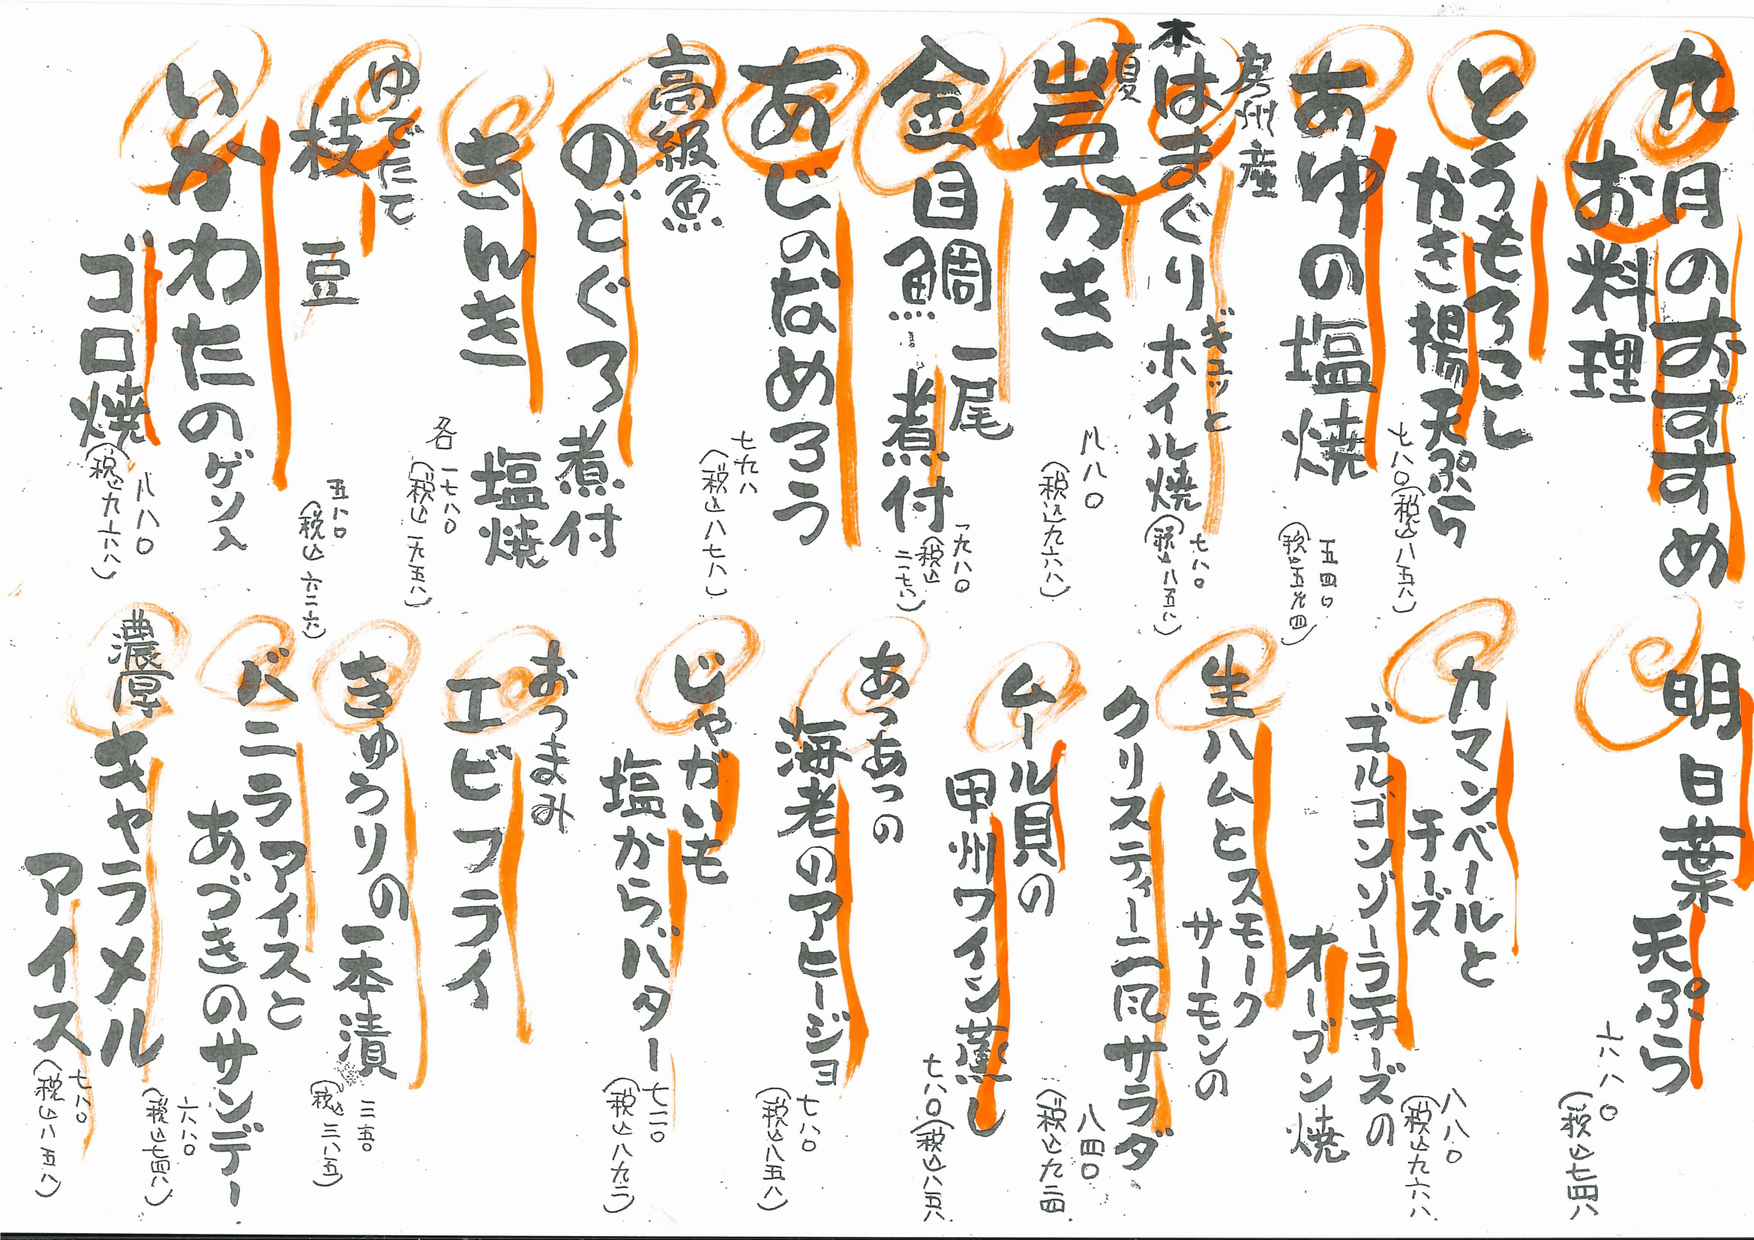 九月のおすすめ
お料理
とうもろこし
かき揚天ぷら
七八〇(税込八五八)
あゆの塩焼
五四〇
(税込五九四)
房州産
本はまぐり
ギュッと
ホイル焼
七八〇
(税込八五八)
夏
岩かき
八八〇
(税込九六八)
金目鯛
一尾
煮付
一九八〇
(税込
二一七八)
あじのなめろう
七九八
(税込八七八)
高級魚
のどぐろ
煮付
きんき
塩焼
各一七八〇
(税込一九五八)
ゆでたて
枝豆
五八〇
(税込六二六)
いかわたのゲソ入
ゴロ焼
八八〇
(税込九六八)
明日葉
天ぷら
六八〇
(税込七四八)
カマンベールと
チーズ
ゴルゴンゾーラチーズの
オーブン焼
八八〇
(税込九六八)
生ハムとスモーク
サーモンの
クリスティーニ風サラダ
八四〇
(税込九二四)
ムール貝の
甲州ワイン蒸し
七八〇(税込八五八)
あつあつの
海老のアヒージョ
七八〇
(税込八五八)
じゃがいも
塩からバター
七一〇
(税込八九二)
おつまみ
エビフライ
きゅうりの一本漬
三五〇
(税込三八五)
バニラアイスと
あづきのサンデー
六八〇
(税込七四八)
濃厚キャラメル
アイス
七八〇
(税込八五八)